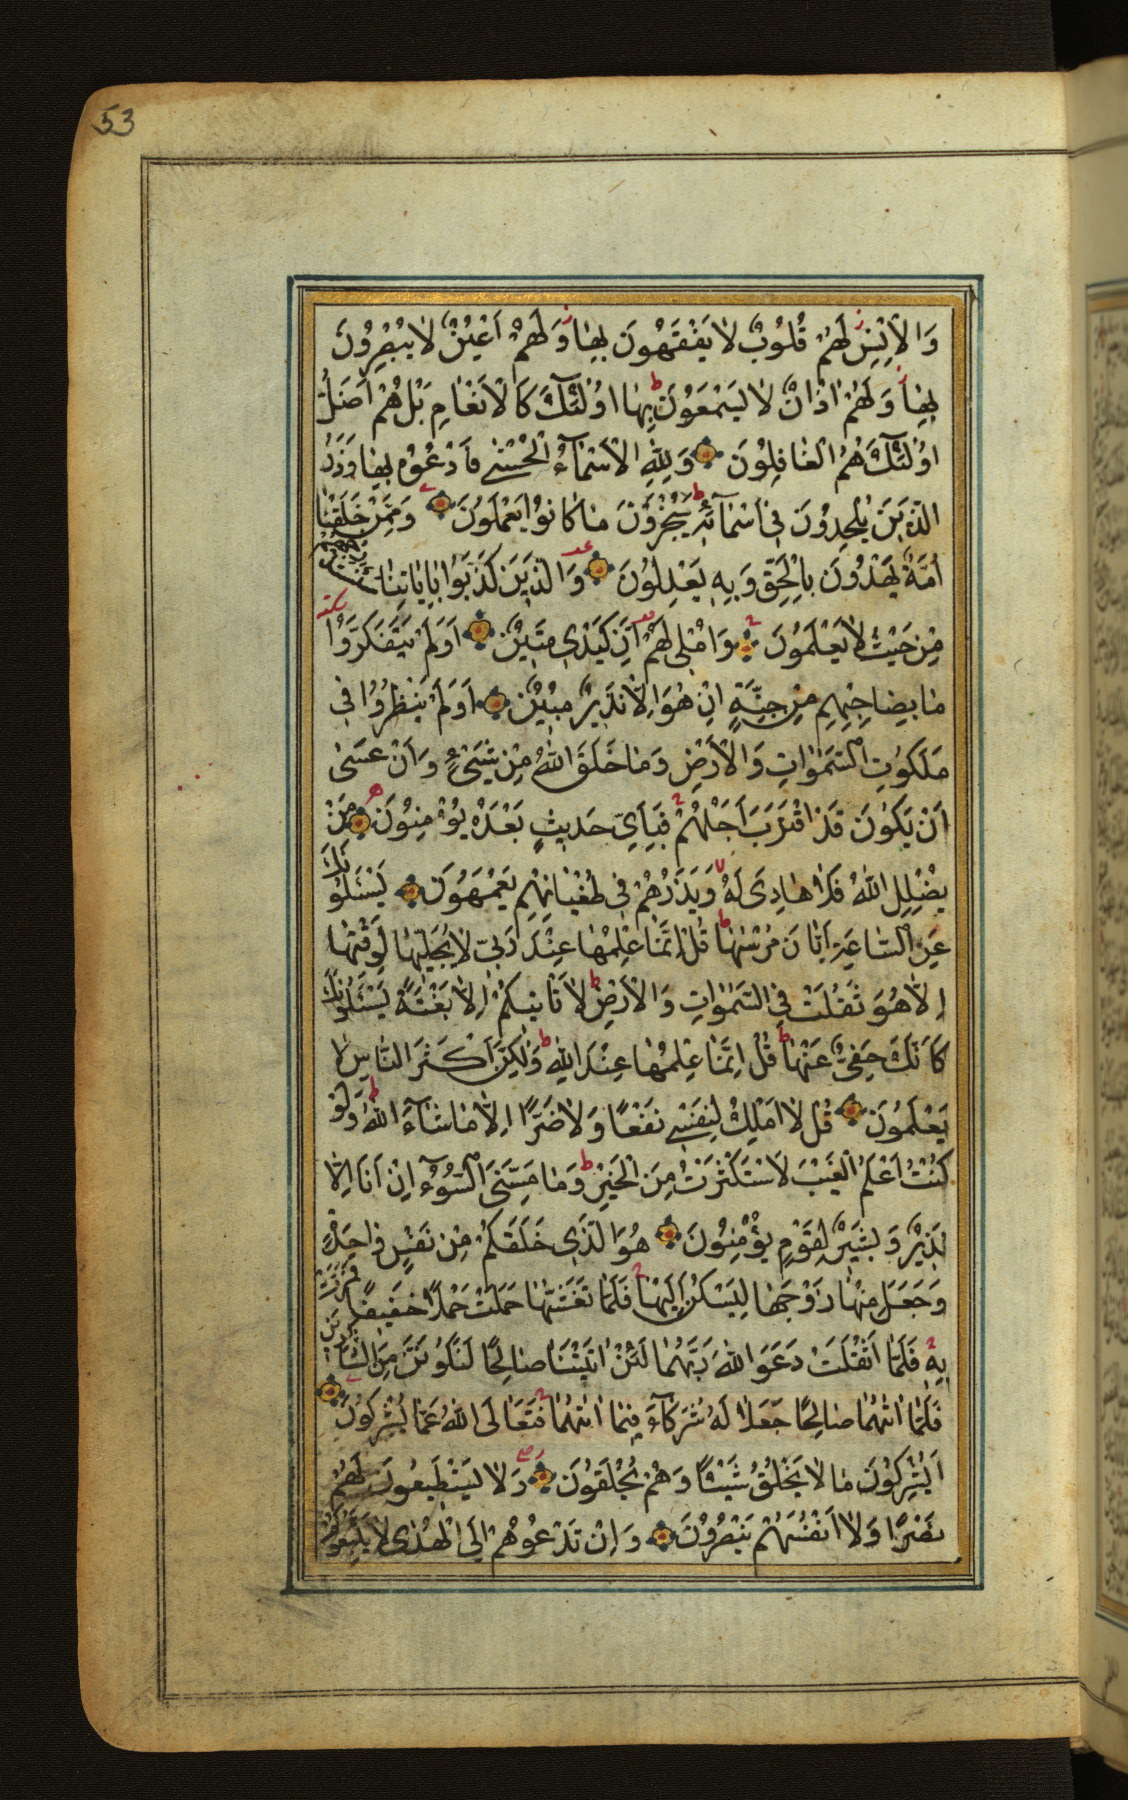 53
وَالْاِنْسِ لَهُمْ قُلُوبٌ لَا يَفْقَهُونَ بِهَا وَلَهُمْ اَعْيُنٌ لَا يُبْصِرُونَ
بِهَا وَلَهُمْ اٰذَانٌ لَا يَسْمَعُونَ بِهَا اُولٰئِكَ كَالْاَنْعَامِ بَلْ هُمْ اَضَلُّ
اُولٰئِكَ هُمُ الْغَافِلُونَ وَلِلّٰهِ الْاَسْمَآءُ الْحُسْنٰى فَادْعُوهُ بِهَا وَذَرُوا
الَّذِينَ يُلْحِدُونَ فِى اَسْمَآئِهِ سَيُجْزَوْنَ مَا كَانُوا يَعْمَلُونَ وَمِمَّنْ خَلَقْنَا
اُمَّةٌ يَهْدُونَ بِالْحَقِّ وَبِهِ يَعْدِلُونَ وَالَّذِينَ كَذَّبُوا بِاٰيَاتِنَا سَنَسْتَدْرِجُهُمْ
مِنْ حَيْثُ لَا يَعْلَمُونَ وَاُمْلِى لَهُمْ اِنَّ كَيْدِى مَتِينٌ اَوَلَمْ يَتَفَكَّرُوا
مَا بِصَاحِبِهِمْ مِنْ جِنَّةٍ اِنْ هُوَ اِلَّا نَذِيرٌ مُبِينٌ اَوَلَمْ يَنْظُرُوا فِى
مَلَكُوتِ السَّمٰوَاتِ وَالْاَرْضِ وَمَا خَلَقَ اللّٰهُ مِنْ شَىْءٍ وَاَنْ عَسٰى
اَنْ يَكُونَ قَدِ اقْتَرَبَ اَجَلُهُمْ فَبِاَىِّ حَدِيثٍ بَعْدَهُ يُؤْمِنُونَ مَنْ
يُضْلِلِ اللّٰهُ فَلَا هَادِىَ لَهُ وَيَذَرُهُمْ فِى طُغْيَانِهِمْ يَعْمَهُونَ يَسْئَلُونَكَ
عَنِ السَّاعَةِ اَيَّانَ مُرْسٰيهَا قُلْ اِنَّمَا عِلْمُهَا عِنْدَ رَبِّى لَا يُجَلِّيهَا لِوَقْتِهَا
اِلَّا هُوَ ثَقُلَتْ فِى السَّمٰوَاتِ وَالْاَرْضِ لَا تَاْتِيكُمْ اِلَّا بَغْتَةً يَسْئَلُونَكَ
كَاَنَّكَ حَفِىٌّ عَنْهَا قُلْ اِنَّمَا عِلْمُهَا عِنْدَ اللّٰهِ وَلٰكِنَّ اَكْثَرَ النَّاسِ لَا
يَعْلَمُونَ قُلْ لَا اَمْلِكُ لِنَفْسِى نَفْعًا وَلَا ضَرًّا اِلَّا مَا شَآءَ اللّٰهُ وَلَوْ
كُنْتُ اَعْلَمُ الْغَيْبَ لَاسْتَكْثَرْتُ مِنَ الْخَيْرِ وَمَا مَسَّنِىَ السُّوءُ اِنْ اَنَا اِلَّا
نَذِيرٌ وَبَشِيرٌ لِقَوْمٍ يُؤْمِنُونَ هُوَ الَّذِى خَلَقَكُمْ مِنْ نَفْسٍ وَاحِدَةٍ
وَجَعَلَ مِنْهَا زَوْجَهَا لِيَسْكُنَ اِلَيْهَا فَلَمَّا تَغَشّٰيهَا حَمَلَتْ حَمْلًا خَفِيفًا فَمَرَّتْ
بِهِ فَلَمَّا اَثْقَلَتْ دَعَوَا اللّٰهَ رَبَّهُمَا لَئِنْ اٰتَيْتَنَا صَالِحًا لَنَكُونَنَّ مِنَ الشَّاكِرِينَ
فَلَمَّا اٰتٰيهُمَا صَالِحًا جَعَلَا لَهُ شُرَكَآءَ فِيمَا اٰتٰيهُمَا فَتَعَالَى اللّٰهُ عَمَّا يُشْرِكُونَ
اَيُشْرِكُونَ مَا لَا يَخْلُقُ شَيْئًا وَهُمْ يُخْلَقُونَ وَلَا يَسْتَطِيعُونَ لَهُمْ
نَصْرًا وَلَا اَنْفُسَهُمْ يَنْصُرُونَ وَاِنْ تَدْعُوهُمْ اِلَى الْهُدٰى لَا يَتَّبِعُوكُمْ